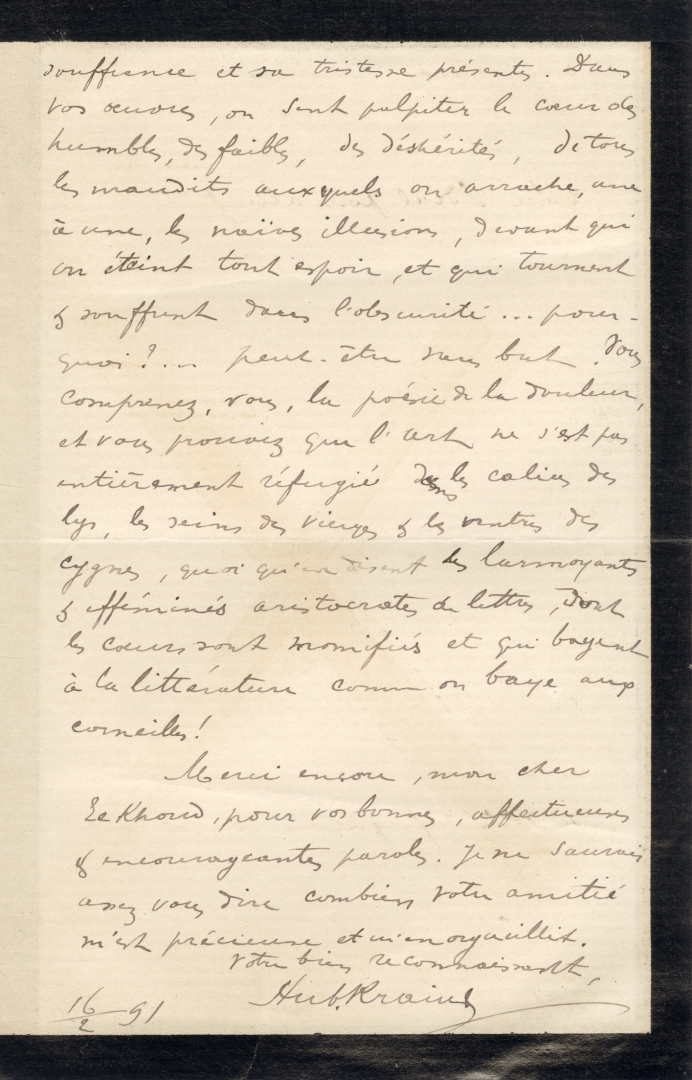 souffrance et sa tristesse présentes. Dans
vos œuvres, on sent palpiter le cœur des
humbles, des faibles, des déshérités, de tous
les maudits auxquels on arrache, une
à une, les naïves illusions, devant qui
on éteint tout espoir, et qui tournent
& souffrent dans l'obscurité ... pour-
quoi?... peut-être sans but. Vous
comprenez, vous, la poésie de la douleur,
et vous prouvez que l'art ne s'est pas
entièrement réfugié dans les calices des
lys, les seins des vierges & les ventres des
cygnes, quoi qu'en disent les larmoyants
& efféminés aristocrates de lettres, dont
les cœurs sont momifiés et qui bayent
à la littérature comme on baye aux
corneilles!
Merci encore, mon cher
Eekhoud, pour vos bonnes, affectueuses
& encourageantes paroles. Je ne saurais
assez vous dire combien votre amitié
m'est précieuse et m'enorgueillit.
Votre bien reconnaissant,
Hub. Krains
16/2 91